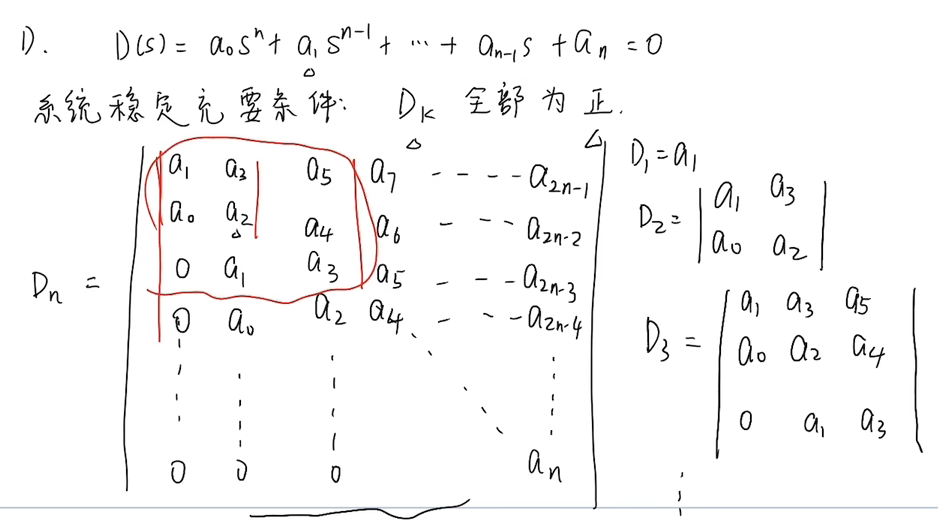 1). D(s) = a₀sⁿ + a₁sⁿ⁻¹ + ⋯ + aₙ₋₁s + aₙ = 0
系统稳定充要条件: Dₖ 全部为正.
Dₙ =
a₁ a₃ a₅ a₇ - - - - a₂ₙ₋₁
a₀ a₂ a₄ a₆ - - - a₂ₙ₋₂
0 a₁ a₃ a₅ - - - a₂ₙ₋₃
0 a₀ a₂ a₄ - - - a₂ₙ₋₄
0 0 0 aₙ
D₁ = a₁
D₂ =
a₁ a₃
a₀ a₂
D₃ =
a₁ a₃ a₅
a₀ a₂ a₄
0 a₁ a₃